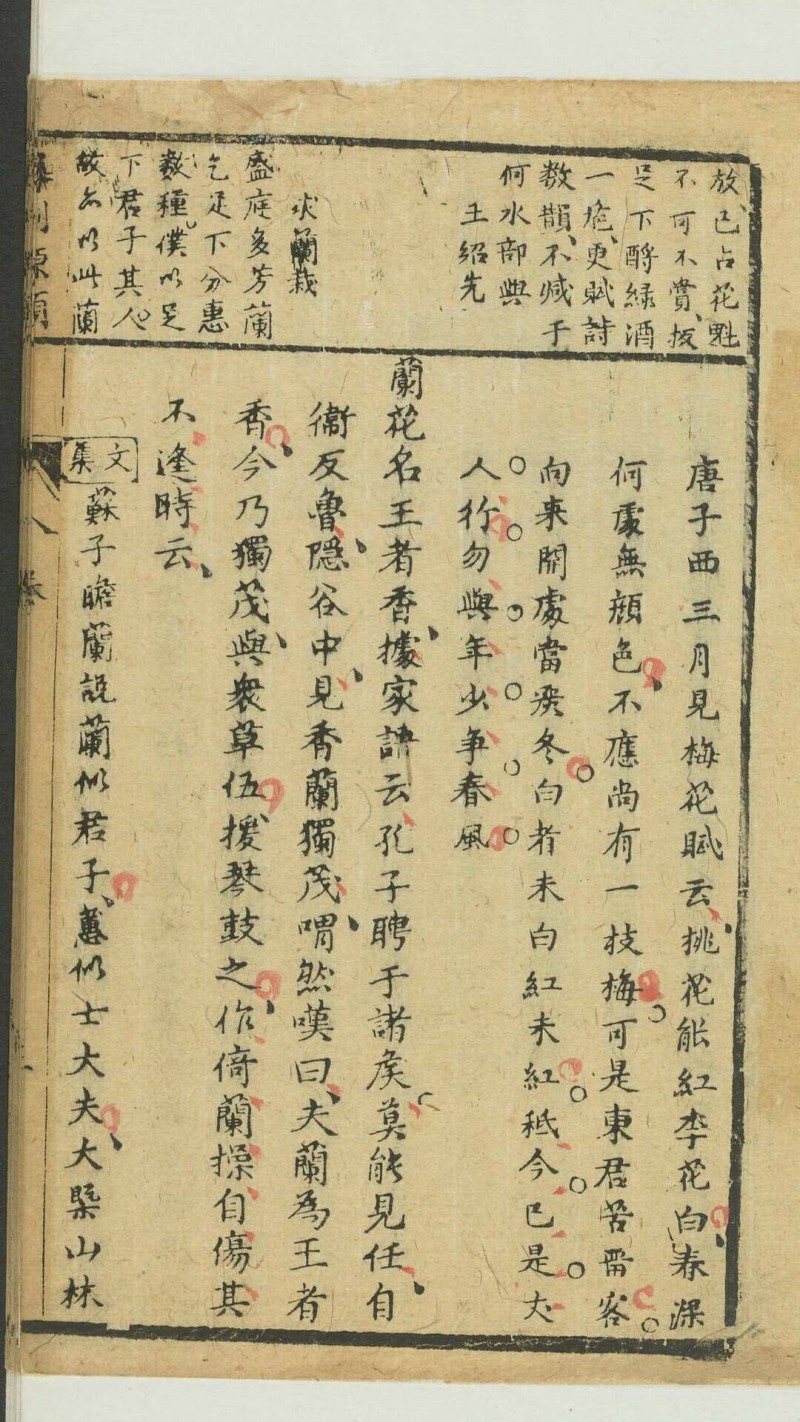 放、已占花魁
不可不賞、拔
足下酹緑酒
一巵、更賦詩
数韻、不减于
何水部與
王紹先
求蘭栽
盛庭多芳蘭
乞足下分惠
数種、僕以足
下君子其人
故亦以此蘭
唐子西三月見梅花賦云、桃花能紅李花白、春深
何處無顔色、不應尚有一枝梅可是東君苦留客
向来開處當嚴冬白者未白紅未紅秖今已是丈
人行勿與年少争春風
蘭花名王者香、據家語云孔子聘于諸矦莫能見任、自
衛反魯、隠谷中、見香蘭獨茂、喟然嘆曰、夫蘭為王者
香、今乃獨茂、與衆草伍、援琴鼓之、作倚蘭操自傷其
不逢時云、
文集
蘇子瞻蘭説蘭似君子、蕙似士大夫、大槩山林
巻